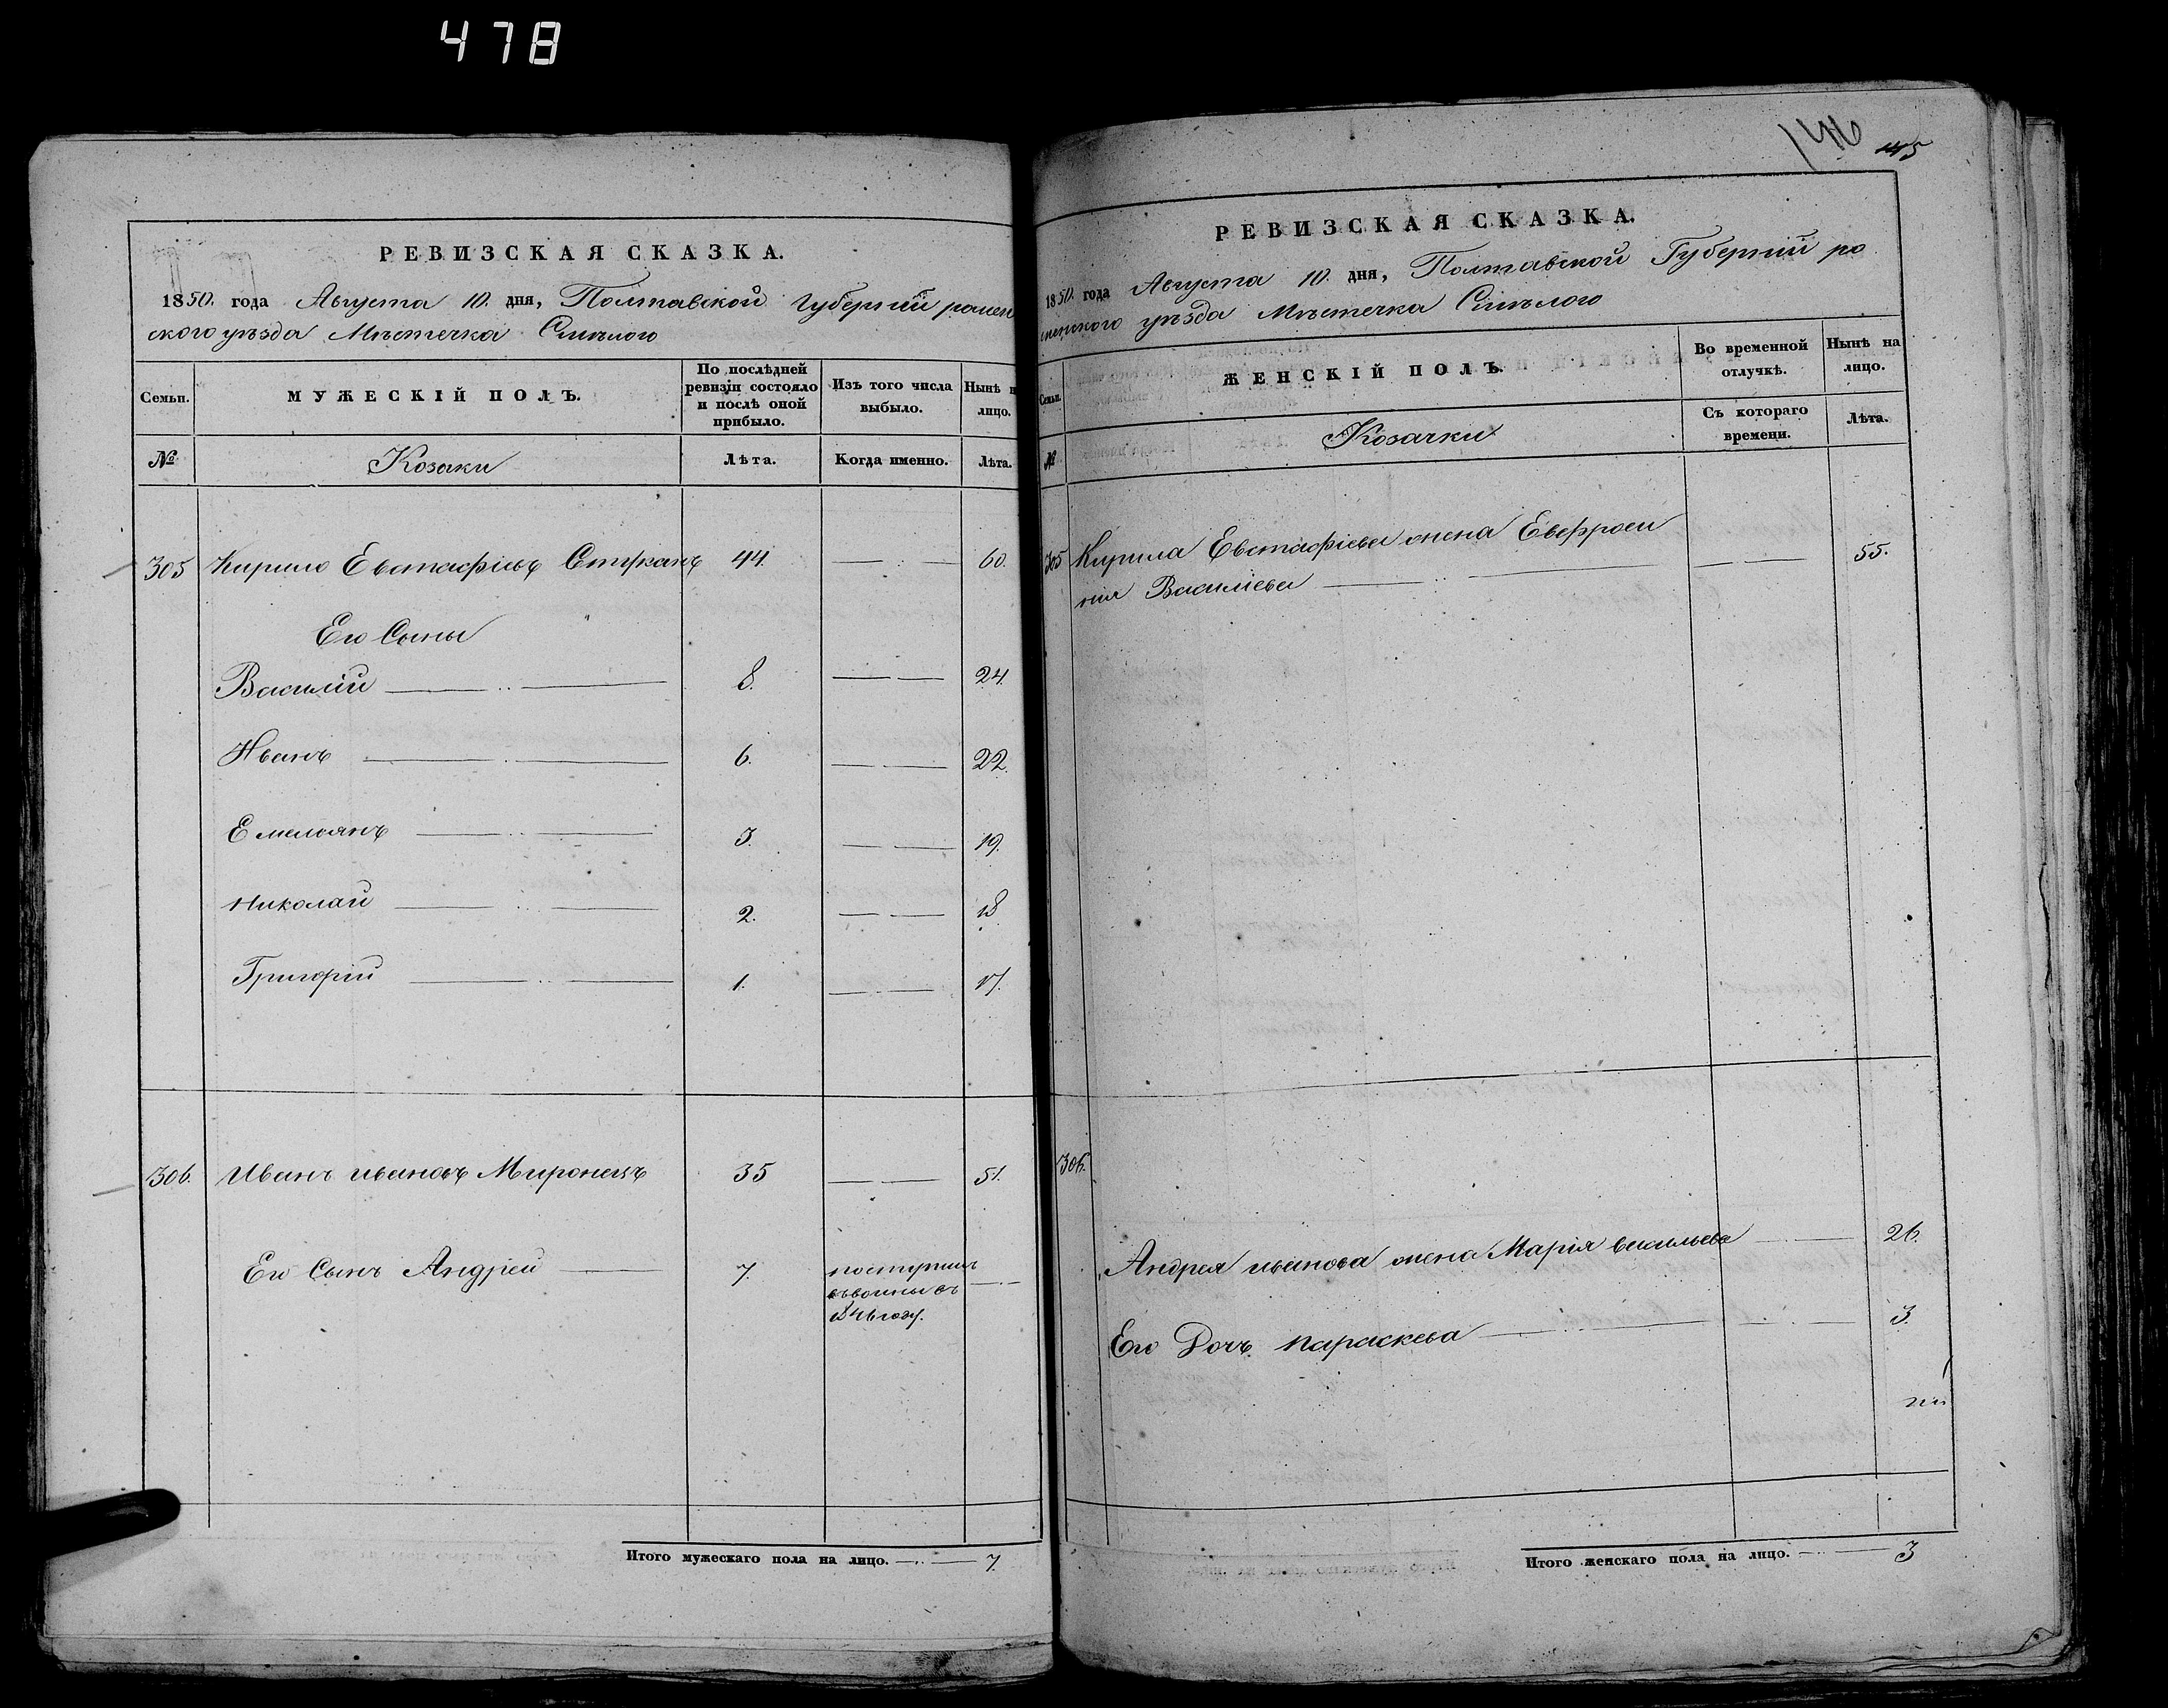 478
РЕВИЗСКАЯ СКАЗКА.
1850. года Августа 10. дня, Полтавской Губерніи ромен
ского уѣзда Мѣстечка Смѣлого
Семьи.
МУЖЕСКІЙ ПОЛЪ.
По послѣдней ревизіи состояло и послѣ оной прибыло.
Изъ того числа выбыло.
Нынѣ н лицо.
№
Козаки
Лѣта.
Когда именно.
Лѣта.
305 Кирило Евстафіевъ 44. 60.
Его Сыны
Василій 8. 24.
Иванъ 6. 22.
Емелоянъ 3. 19.
Николай 2. 18
Григорій 1. 17.
306. Иванъ ивановъ Миронецъ 35 51.
Его Сынъ Андрей 7. поступилъ
въ
1846 году.
Итого мужескаго пола на лицо. 7.
146 145
РЕВИЗСКАЯ СКАЗКА.
1850. года Августа 10. дня, Полтавской Губерніи ро
менского уѣзда Мѣстечка Смѣлого
Семьи.
ЖЕНСКІЙ ПОЛЪ.
Во временной отлучкѣ.
Нынѣ на лицо.
№
Козачки
Съ котораго времени.
Лѣта.
305 Кирила Евстафіева жена Евфроси
нія Василіева 55.
306.
Андрея иванова жена Марія васильева 26.
Его Дочь параскева 3.
Итого женскаго пола на лицо. 3